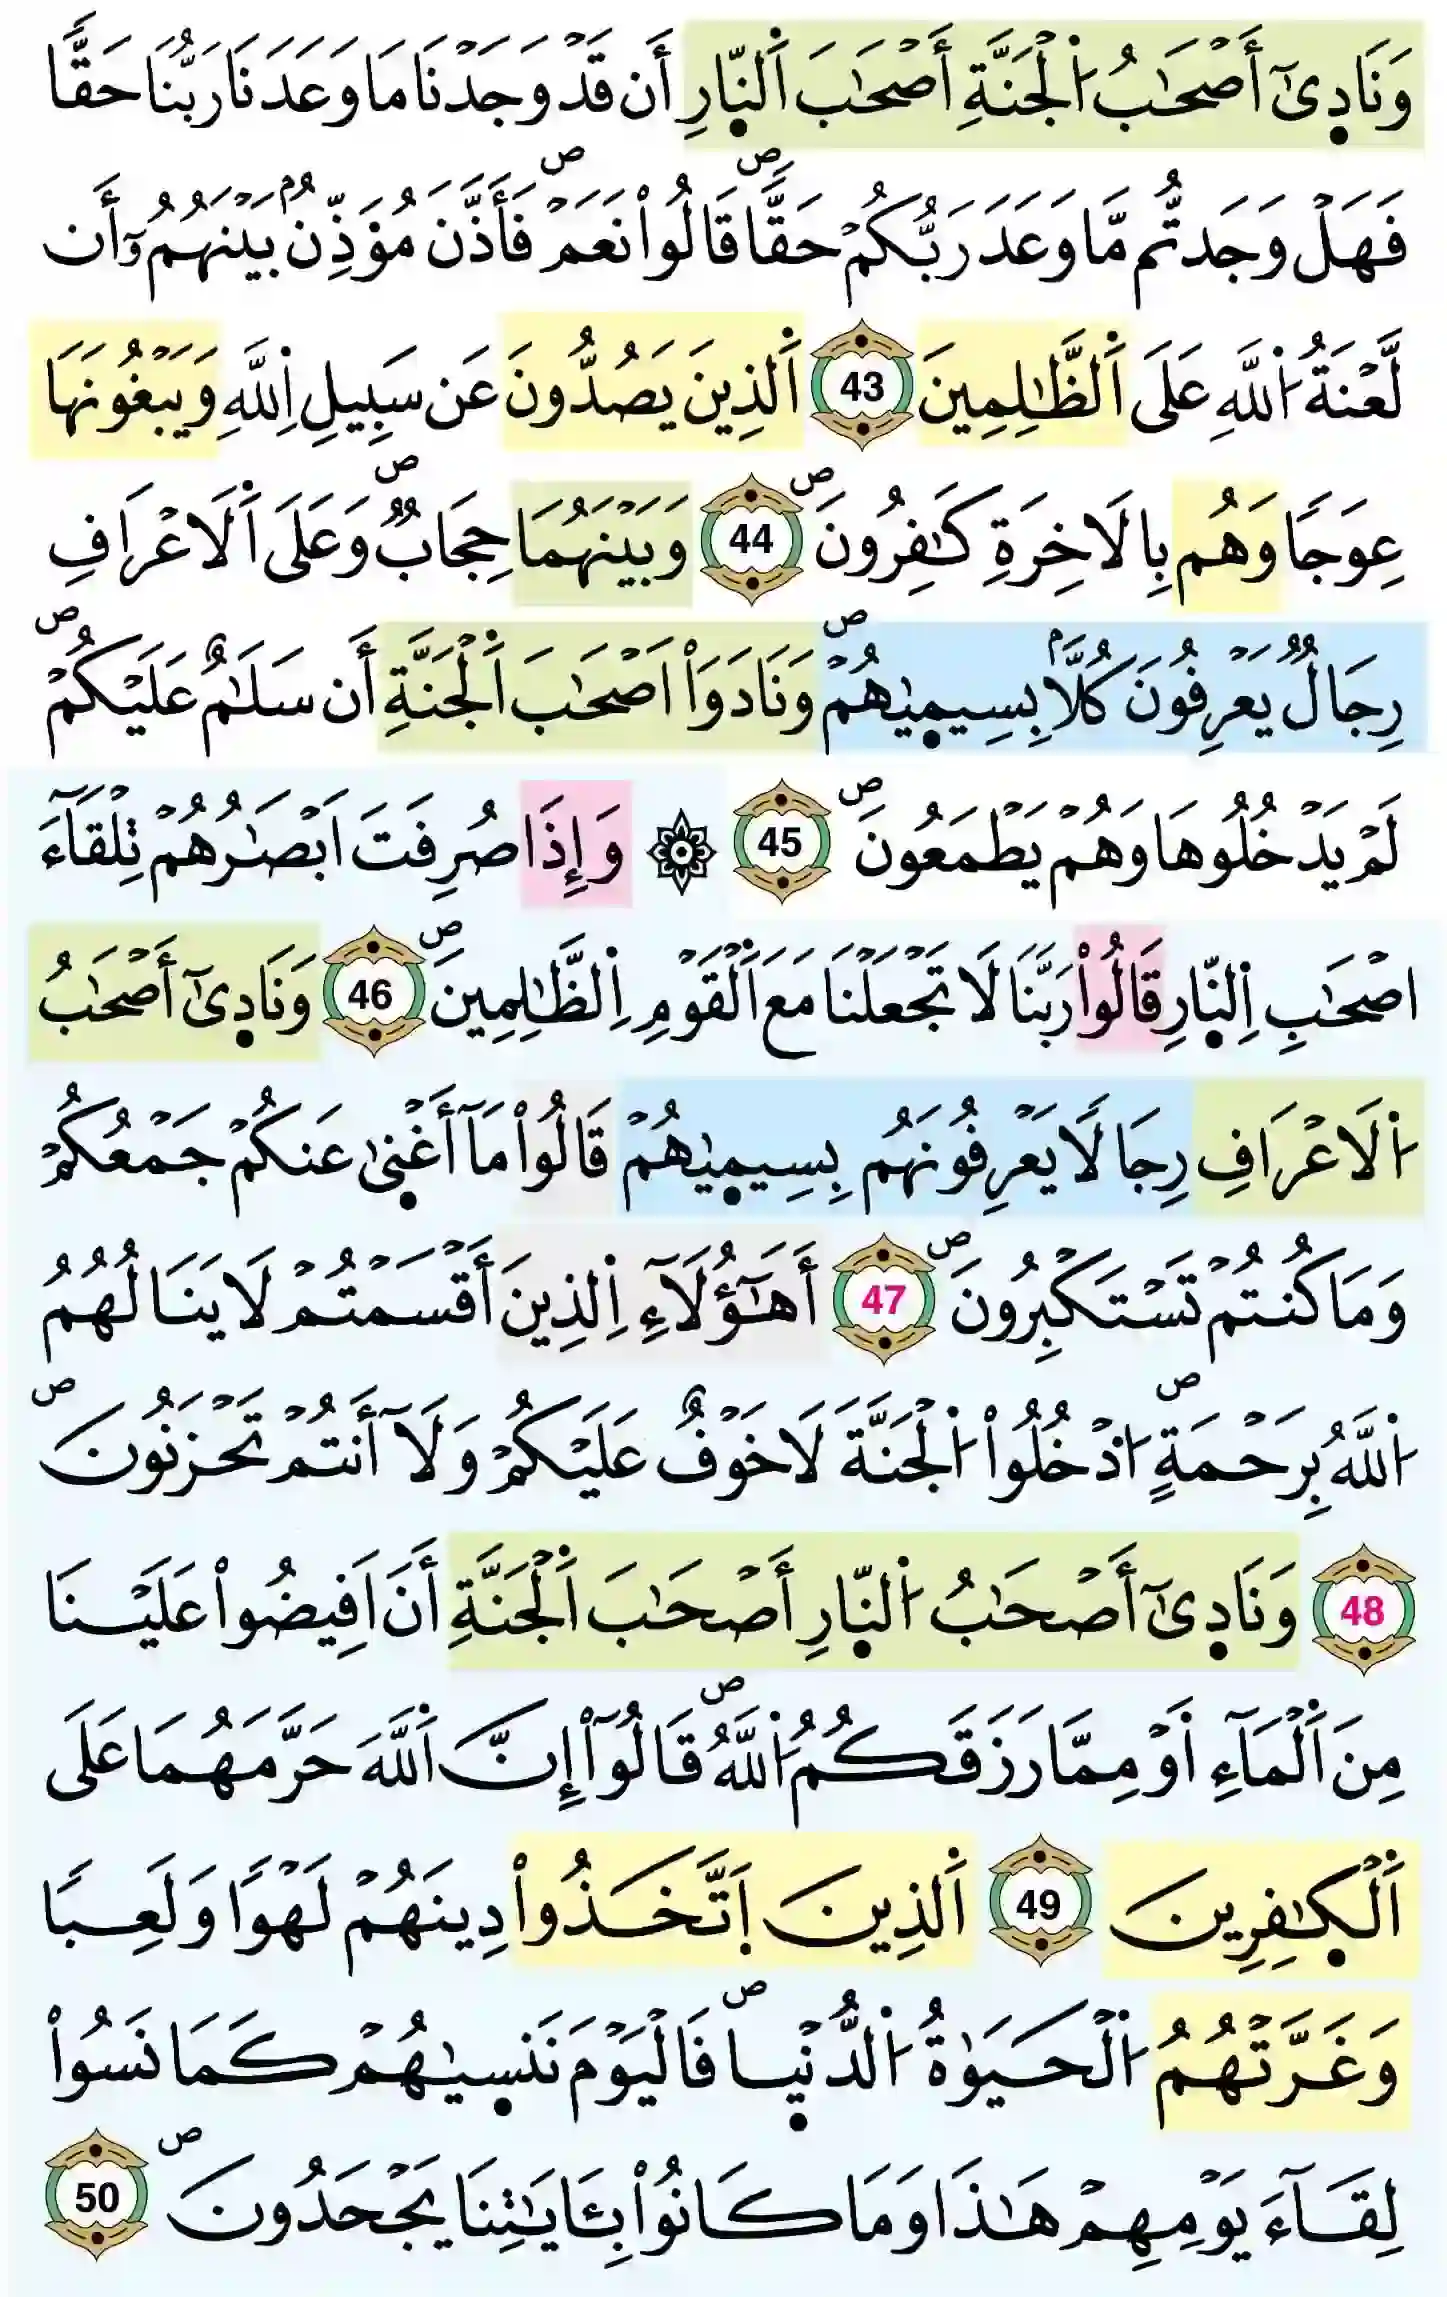 وَنَادِىٰٓ أَصْحَٰبُ اُ۬لْجَنَّةِ أَصْحَٰبَ اَ۬لنّ۪ارِ أَن قَدْ وَجَدْنَا مَا وَعَدَنَا رَبُّنَا حَقّٗا
فَهَلْ وَجَدتُّم مَّا وَعَدَ رَبُّكُمْ حَقّٗاۖ قَالُواْ نَعَمْۖ فَأَذَّنَ مُؤَذِّنُۢ بَيْنَهُمُۥٓ أَن
لَّعْنَةُ اُ۬للَّهِ عَلَى اَ۬لظَّٰلِمِينَ 43 اَ۬لذِينَ يَصُدُّونَ عَن سَبِيلِ اِ۬للَّهِ وَيَبْغُونَهَا
عِوَجٗا وَهُم بِالَاخِرَةِ كَٰفِرُونَۖ 44 وَبَيْنَهُمَا حِجَابٞۖ وَعَلَى اَ۬لَاعْرَافِ
رِجَالٞ يَعْرِفُونَ كُلَّاۢ بِسِيم۪يٰهُمْۖ وَنَادَوَاْ اَصْحَٰبَ اَ۬لْجَنَّةِ أَن سَلَٰمٌ عَلَيْكُمْۖ
لَمْ يَدْخُلُوهَا وَهُمْ يَطْمَعُونَۖ 45 ۞ وَإِذَا صُرِفَتَ اَبْصَٰرُهُمْ تِلْقَآءَ
اصْحَٰبِ اِ۬لنّ۪ارِ قَالُواْ رَبَّنَا لَا تَجْعَلْنَا مَعَ اَ۬لْقَوْمِ اِ۬لظَّٰلِمِينَۖ 46 وَنَادِىٰٓ أَصْحَٰبُ
اُ۬لَاعْرَافِ رِجَالٗا يَعْرِفُونَهُم بِسِيم۪يٰهُمْ قَالُواْ مَآ أَغْنِىٰ عَنكُمْ جَمْعُكُمْ
وَمَا كُنتُمْ تَسْتَكْبِرُونَۖ 47 أَهَٰٓؤُلَآءِ اِ۬لذِينَ أَقْسَمْتُمْ لَا يَنَالُهُمُ
اُ۬للَّهُ بِرَحْمَةٍۖ اُ۟دْخُلُواْ اُ۬لْجَنَّةَ لَا خَوْفٌ عَلَيْكُمْ وَلَآ أَنتُمْ تَحْزَنُونَۖ
48 وَنَادِىٰٓ أَصْحَٰبُ اُ۬لنّ۪ارِ أَصْحَٰبَ اَ۬لْجَنَّةِ أَنَ اَفِيضُواْ عَلَيْنَا
مِنَ اَ۬لْمَآءِ اَوْ مِمَّا رَزَقَكُمُ اُ۬للَّهُۖ قَالُوٓاْ إِنَّ اَ۬للَّهَ حَرَّمَهُمَا عَلَى
اَ۬لْكٰ۪فِرِينَ 49 اَ۬لذِينَ اَ۪تَّخَذُواْ دِينَهُمْ لَهْوٗا وَلَعِبٗا
وَغَرَّتْهُمُ اُ۬لْحَيَوٰةُ اُ۬لدُّنْي۪اۖ فَالْيَوْمَ نَنس۪يٰهُمْ كَمَا نَسُواْ
لِقَآءَ يَوْمِهِمْ هَٰذَا وَمَا كَانُواْ بِـَٔايَٰتِنَا يَجْحَدُونَۖ 50